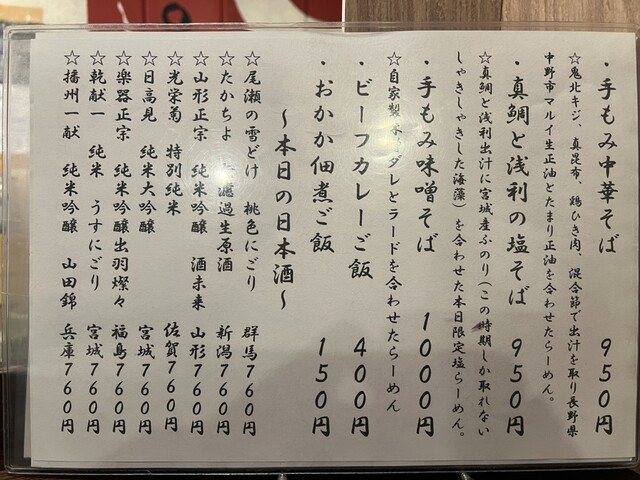 ・手もみ中華そば 950円
☆鬼北キジ、真昆布、鶏ひき肉、混合節で出汁を取り長野県
中野市マルイ生正油とたまり正油を合わせたらーめん。
・真鯛と浅利の塩そば 950円
☆真鯛と浅利出汁に宮城産ふのり(この時期しか取れない
しゃきしゃきした海藻)を合わせた本日限定塩らーめん。
・手もみ味噌そば 1000円
☆自家製ダレとラードを合わせたらーめん
・ビーフカレーご飯 400円
・おかか佃煮ご飯 150円
〜本日の日本酒〜
☆尾瀬の雪どけ 桃色にごり 群馬760円
☆たかちよ 濾過生原酒 新潟760円
☆山形正宗 純米吟醸 酒未来 山形760円
☆光栄菊 特別純米 佐賀760円
☆日高見 純米大吟醸 宮城760円
☆楽器正宗 純米吟醸出羽燦々 福島760円
☆乾献一 純米 うすにごり 宮城760円
☆播州一献 純米吟醸 山田錦 兵庫760円